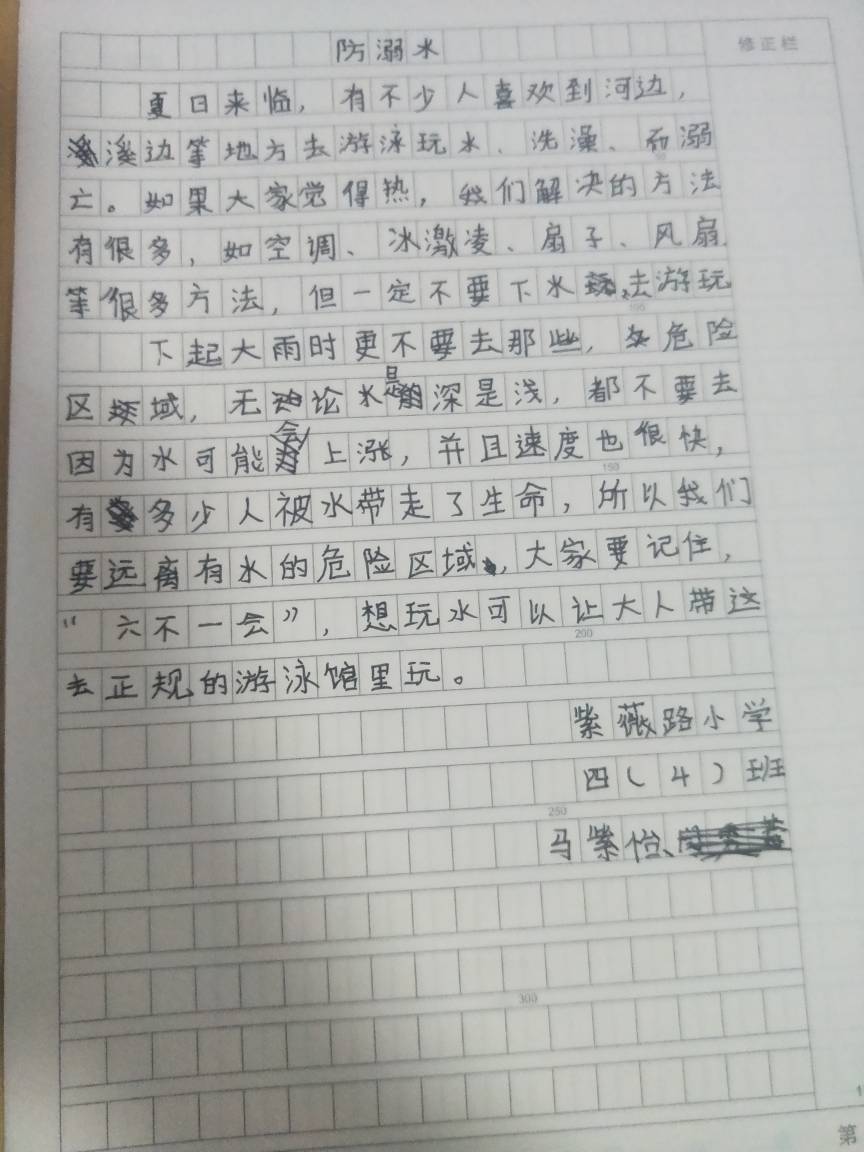 防溺水
修正栏
夏日来临，有不少人喜欢到河边，
溪边等地方去游泳玩水、洗澡、而溺
亡。如果大家觉得热，我们解决的方法
有很多，如空调、冰激凌、扇子、风扇
等很多方法，但一定不要下水去游玩
下起大雨时更不要去那些，危险
区域，无论水是深是浅，都不要去
因为水可能会上涨，并且速度也很快，
150
有多少人被水带走了生命，所以我们
要远离有水的危险区域，大家要记住，
“六不一会”，想玩水可以让大人带这
200
去正规的游泳馆里玩。
紫薇路小学
四（4）班
250
马紫怡、
300
1
第